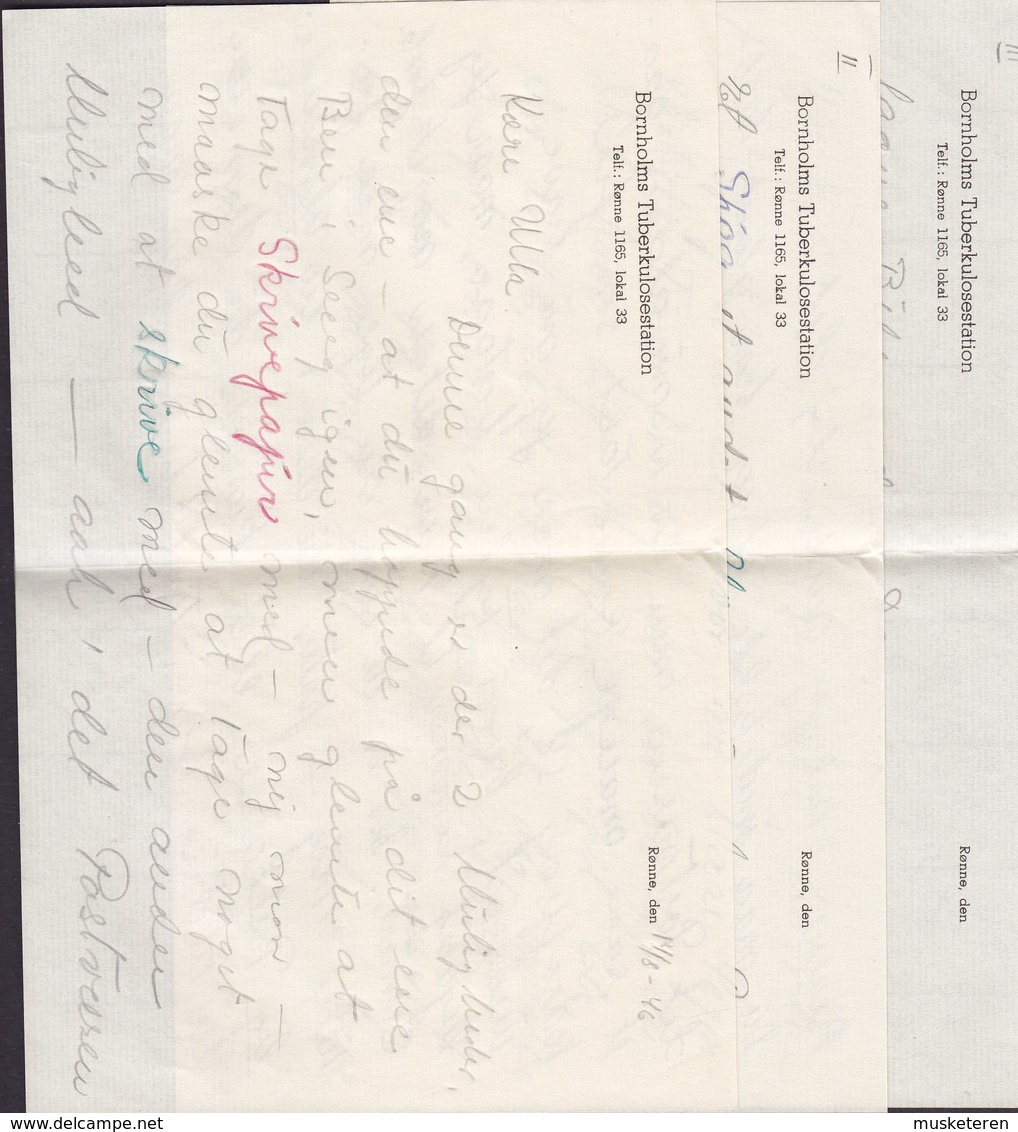 Bornholms Tuberkulosestation
Telf.: Rønne 1165, lokal 33
Rønne, den 14/8-46
Kære Ulla.
Denne gang er der 2 Muligheder,
den ene – at du hoppede på dit ene
Ben i Seeg igen, men glemte at
Tage Skrivepapir med – nej mon –
maaske du glemte at Tage noget
med at skrive med – den anden
Mulighed — aah, det Postvæsen
II
Bornholms Tuberkulosestation
Telf.: Rønne 1165, lokal 33
Rønne, den
III
Bornholms Tuberkulosestation
Telf.: Rønne 1165, lokal 33
Rønne, den
www.delcampe.net
musketeren